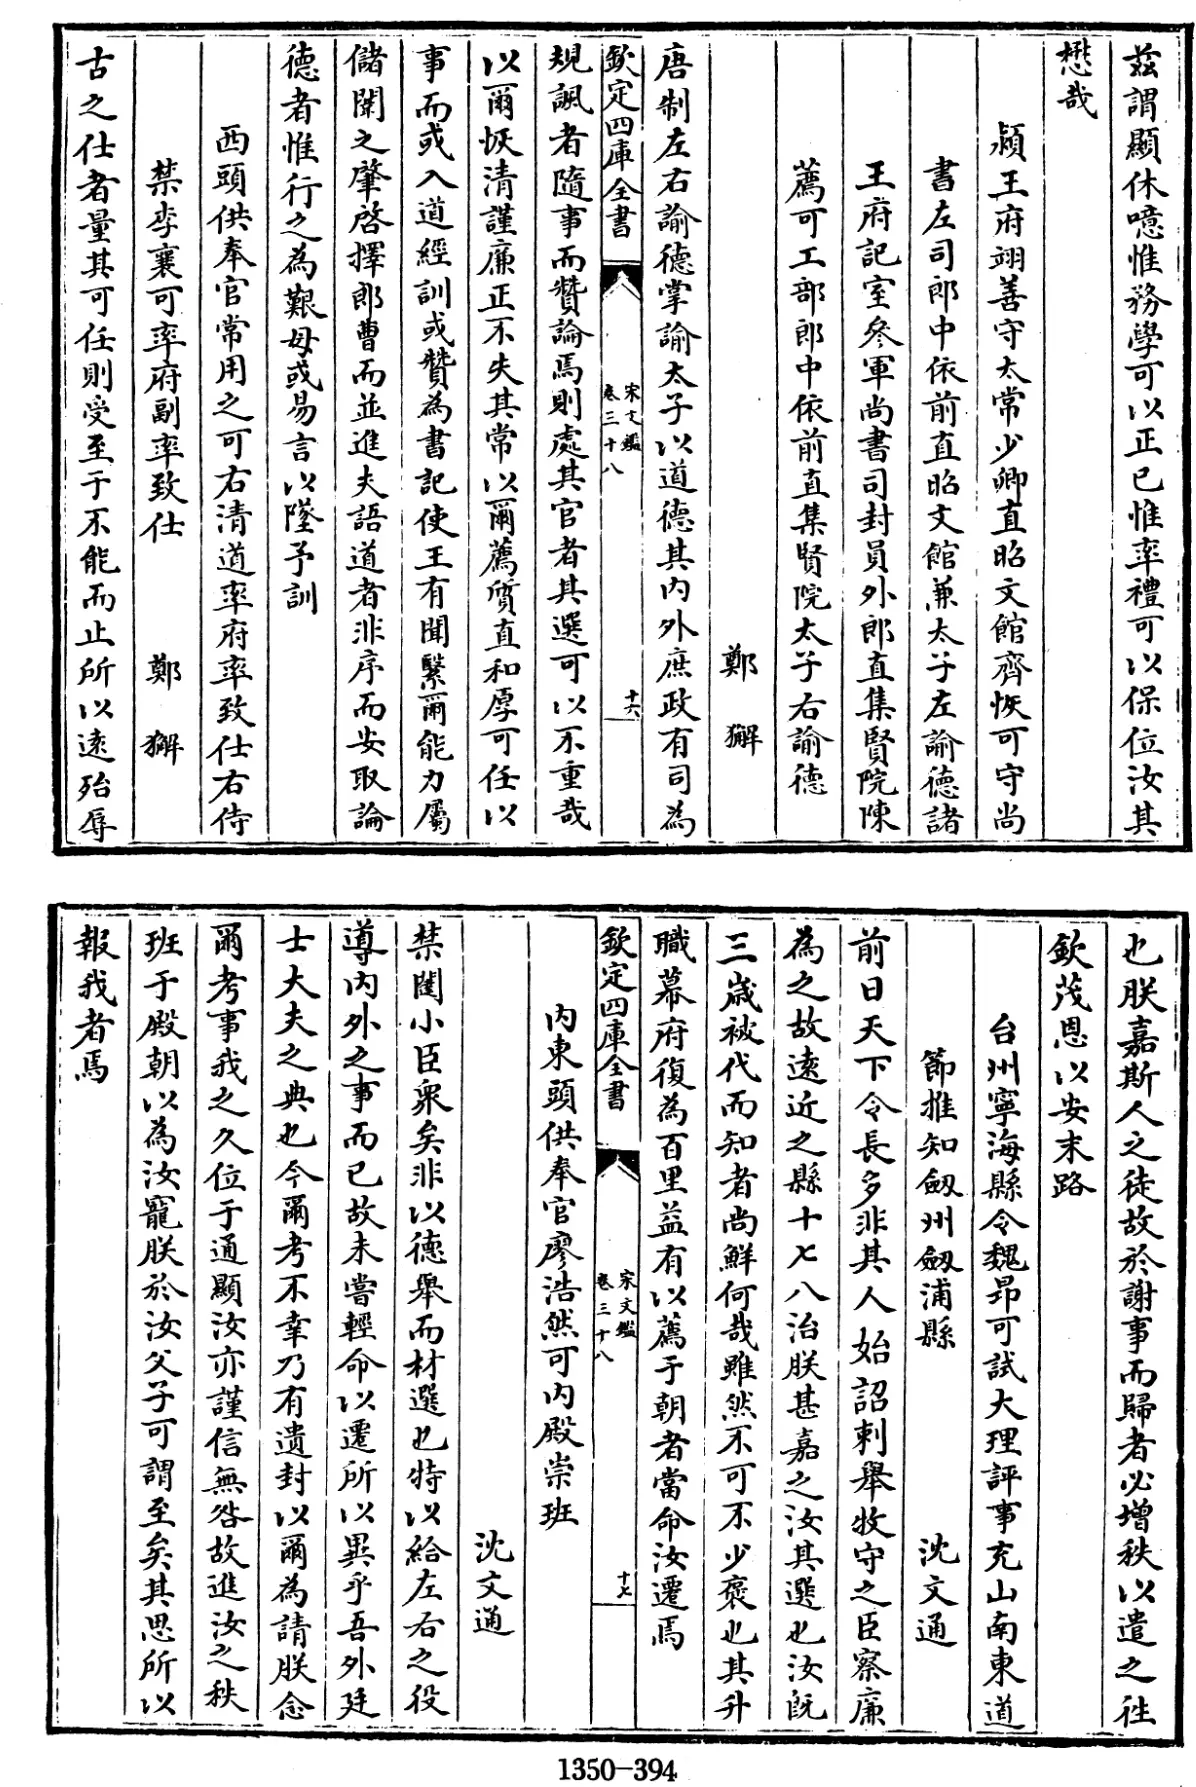 茲謂顯休噫惟務學可以正己惟率禮可以保位汝其
懋哉
潁王府翊善守太常少卿直昭文館齊恢可守尚
書左司郎中依前直昭文館兼太子左諭德諸
王府記室參軍尚書司封員外郎直集賢院陳
薦可工部郎中依前直集賢院太子右諭德
鄭獬
唐制左右諭德掌諭太子以道德其内外庶政有司為
欽定四庫全書
宋文鑑
卷三十八
十六
規諷者隨事而贊論焉則處其官者其選可以不重哉
以爾恢清謹廉正不失其常以爾薦質直和厚可任以
事而或入道經訓或贊為書記使王有聞繄爾能力屬
儲闈之肇啓擇郎曹而並進夫語道者非序而安取論
德者惟行之為艱毋或易言以墜予訓
西頭供奉官常用之可右清道率府率致仕右侍
禁李襄可率府副率致仕
鄭獬
古之仕者量其可任則受至于不能而止所以遠殆辱
也朕嘉斯人之徒故於謝事而歸者必增秩以遣之往
欽茂恩以安末路
台州寧海縣令魏昂可試大理評事充山南東道
節推知劔州劔浦縣
沈文通
前日天下令長多非其人始詔刺舉牧守之臣察廉
為之故遠近之縣十七八治朕甚嘉之汝其選也汝既
三歲被代而知者尚鮮何哉雖然不可不少褒也其升
職幕府復為百里益有以薦于朝者當命汝遷焉
欽定四庫全書
宋文鑑
卷三十八
十七
内東頭供奉官廖浩然可内殿崇班
沈文通
禁闥小臣衆矣非以德舉而材選也特以給左右之役
導内外之事而已故未嘗輕命以遷所以異乎吾外廷
士大夫之典也今爾考不幸乃有遺封以爾為請朕念
爾考事我之久位于通顯汝亦謹信無咎故進汝之秩
班于殿朝以為汝寵朕於汝父子可謂至矣其思所以
報我者焉
1350-394